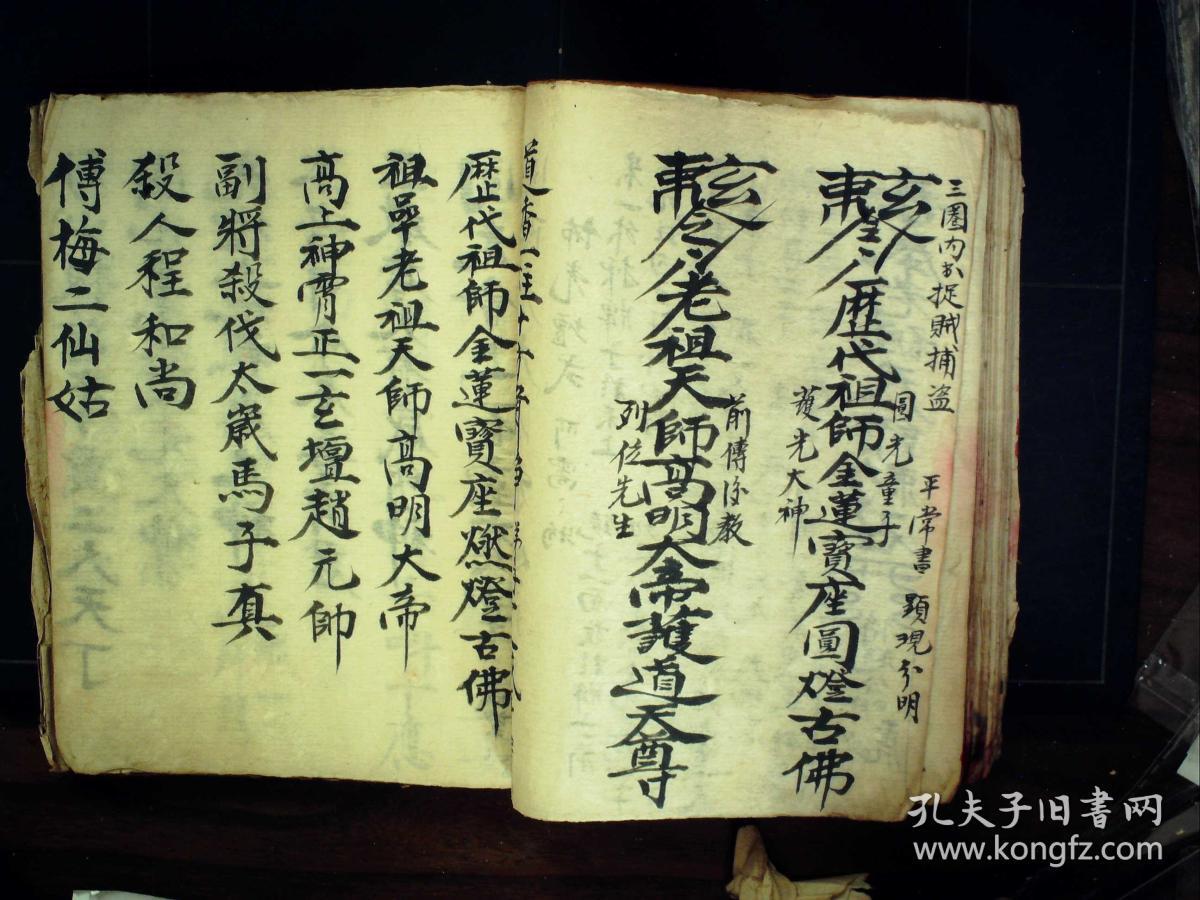 三圈内扒捉賊捕盜
平常書 顕現分明
圓光童子
歷代祖師金蓮寳座圓燈古佛
護光大神
前傳後教
老祖天師高明大帝護道天尊
列位先生
道香一炷
歷代祖師金蓮寳座燃燈古佛
祖師老祖天師高明大帝
高上神霄正一玄壇趙元帥
副將殺伐太歲馬子真
殺人程和尚
傅梅二仙姑
孔夫子旧书网
www.kongfz.com